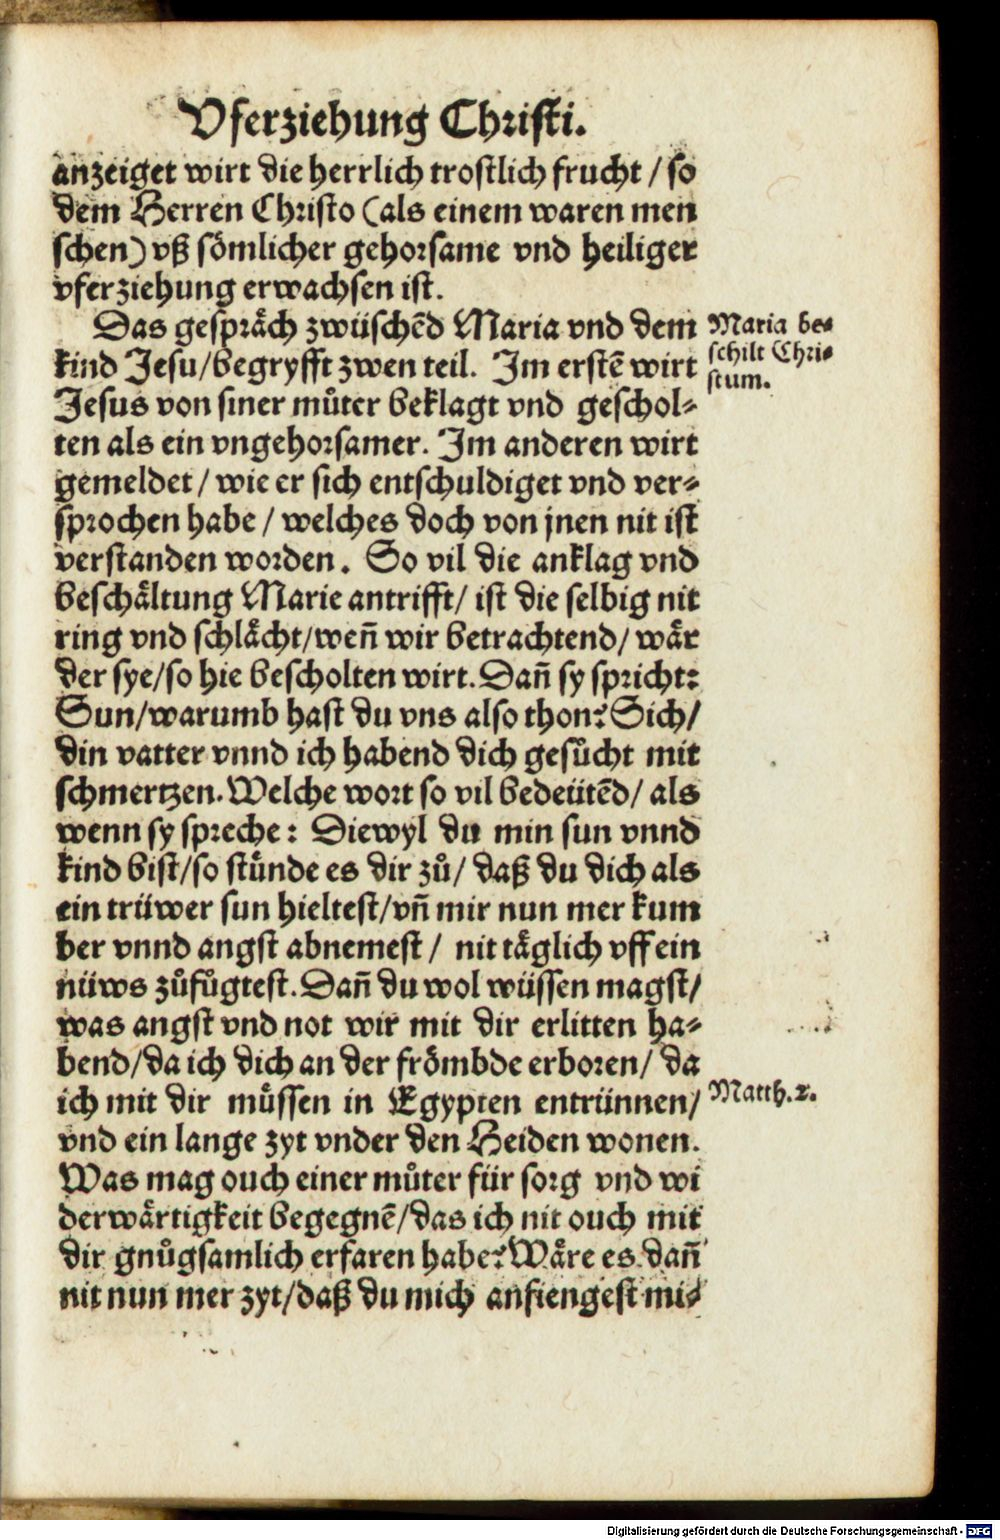 Vferziehung Christi.
anzeiget wirt die herrlich trostlich frucht / so
dem Herren Christo (als einem waren men
schen) vß sömlicher gehorsame vnd heiliger
vferziehung erwachsen ist.
Das gespräch zwüschẽd Maria vnd dem
kind Jesu/begryfft zwen teil. Im erstẽ wirt
Jesus von siner můter beklagt vnd geschol⸗
ten als ein vngehorsamer. Im anderen wirt
gemeldet / wie er sich entschuldiget vnd ver⸗
sprochen habe / welches doch von jnen nit ist
verstanden worden. So vil die anklag vnd
beschältung Marie antrifft/ ist die selbig nit
ring vnd schlächt/weñ wir betrachtend/ wär
der sye/so hie bescholten wirt. Dañ sy spricht:
Sun/warumb hast du vns also thon? Sich/
din vatter vnnd ich habend dich gesůcht mit
schmertzen. Welche wort so vil bedeütẽd/ als
wenn sy spreche: Diewyl du min sun vnnd
kind bist/so stünde es dir zů/ daß du dich als
ein trüwer sun hieltest/vñ mir nun mer kum
ber vnnd angst abnemest / nit täglich vff ein
nüws zůfůgtest. Dañ du wol wüssen magst/
was angst vnd not wir mit dir erlitten ha⸗
bend/da ich dich an der frömbde erboren/ da
ich mit dir müssen in Egypten entrünnen/
vnd ein lange zyt vnder den Heiden wonen.
Was mag ouch einer můter für sorg vnd wi
derwärtigkeit begegnẽ/das ich nit ouch mit
dir gnůgsamlich erfaren habe? Wäre es dañ
nit nun mer zyt/daß du mich anfiengest mi⸗
Maria be⸗
schilt Chri⸗
stum.
Matth. 2.
Digitalisierung gefördert durch die Deutsche Forschungsgemeinschaft - DFG